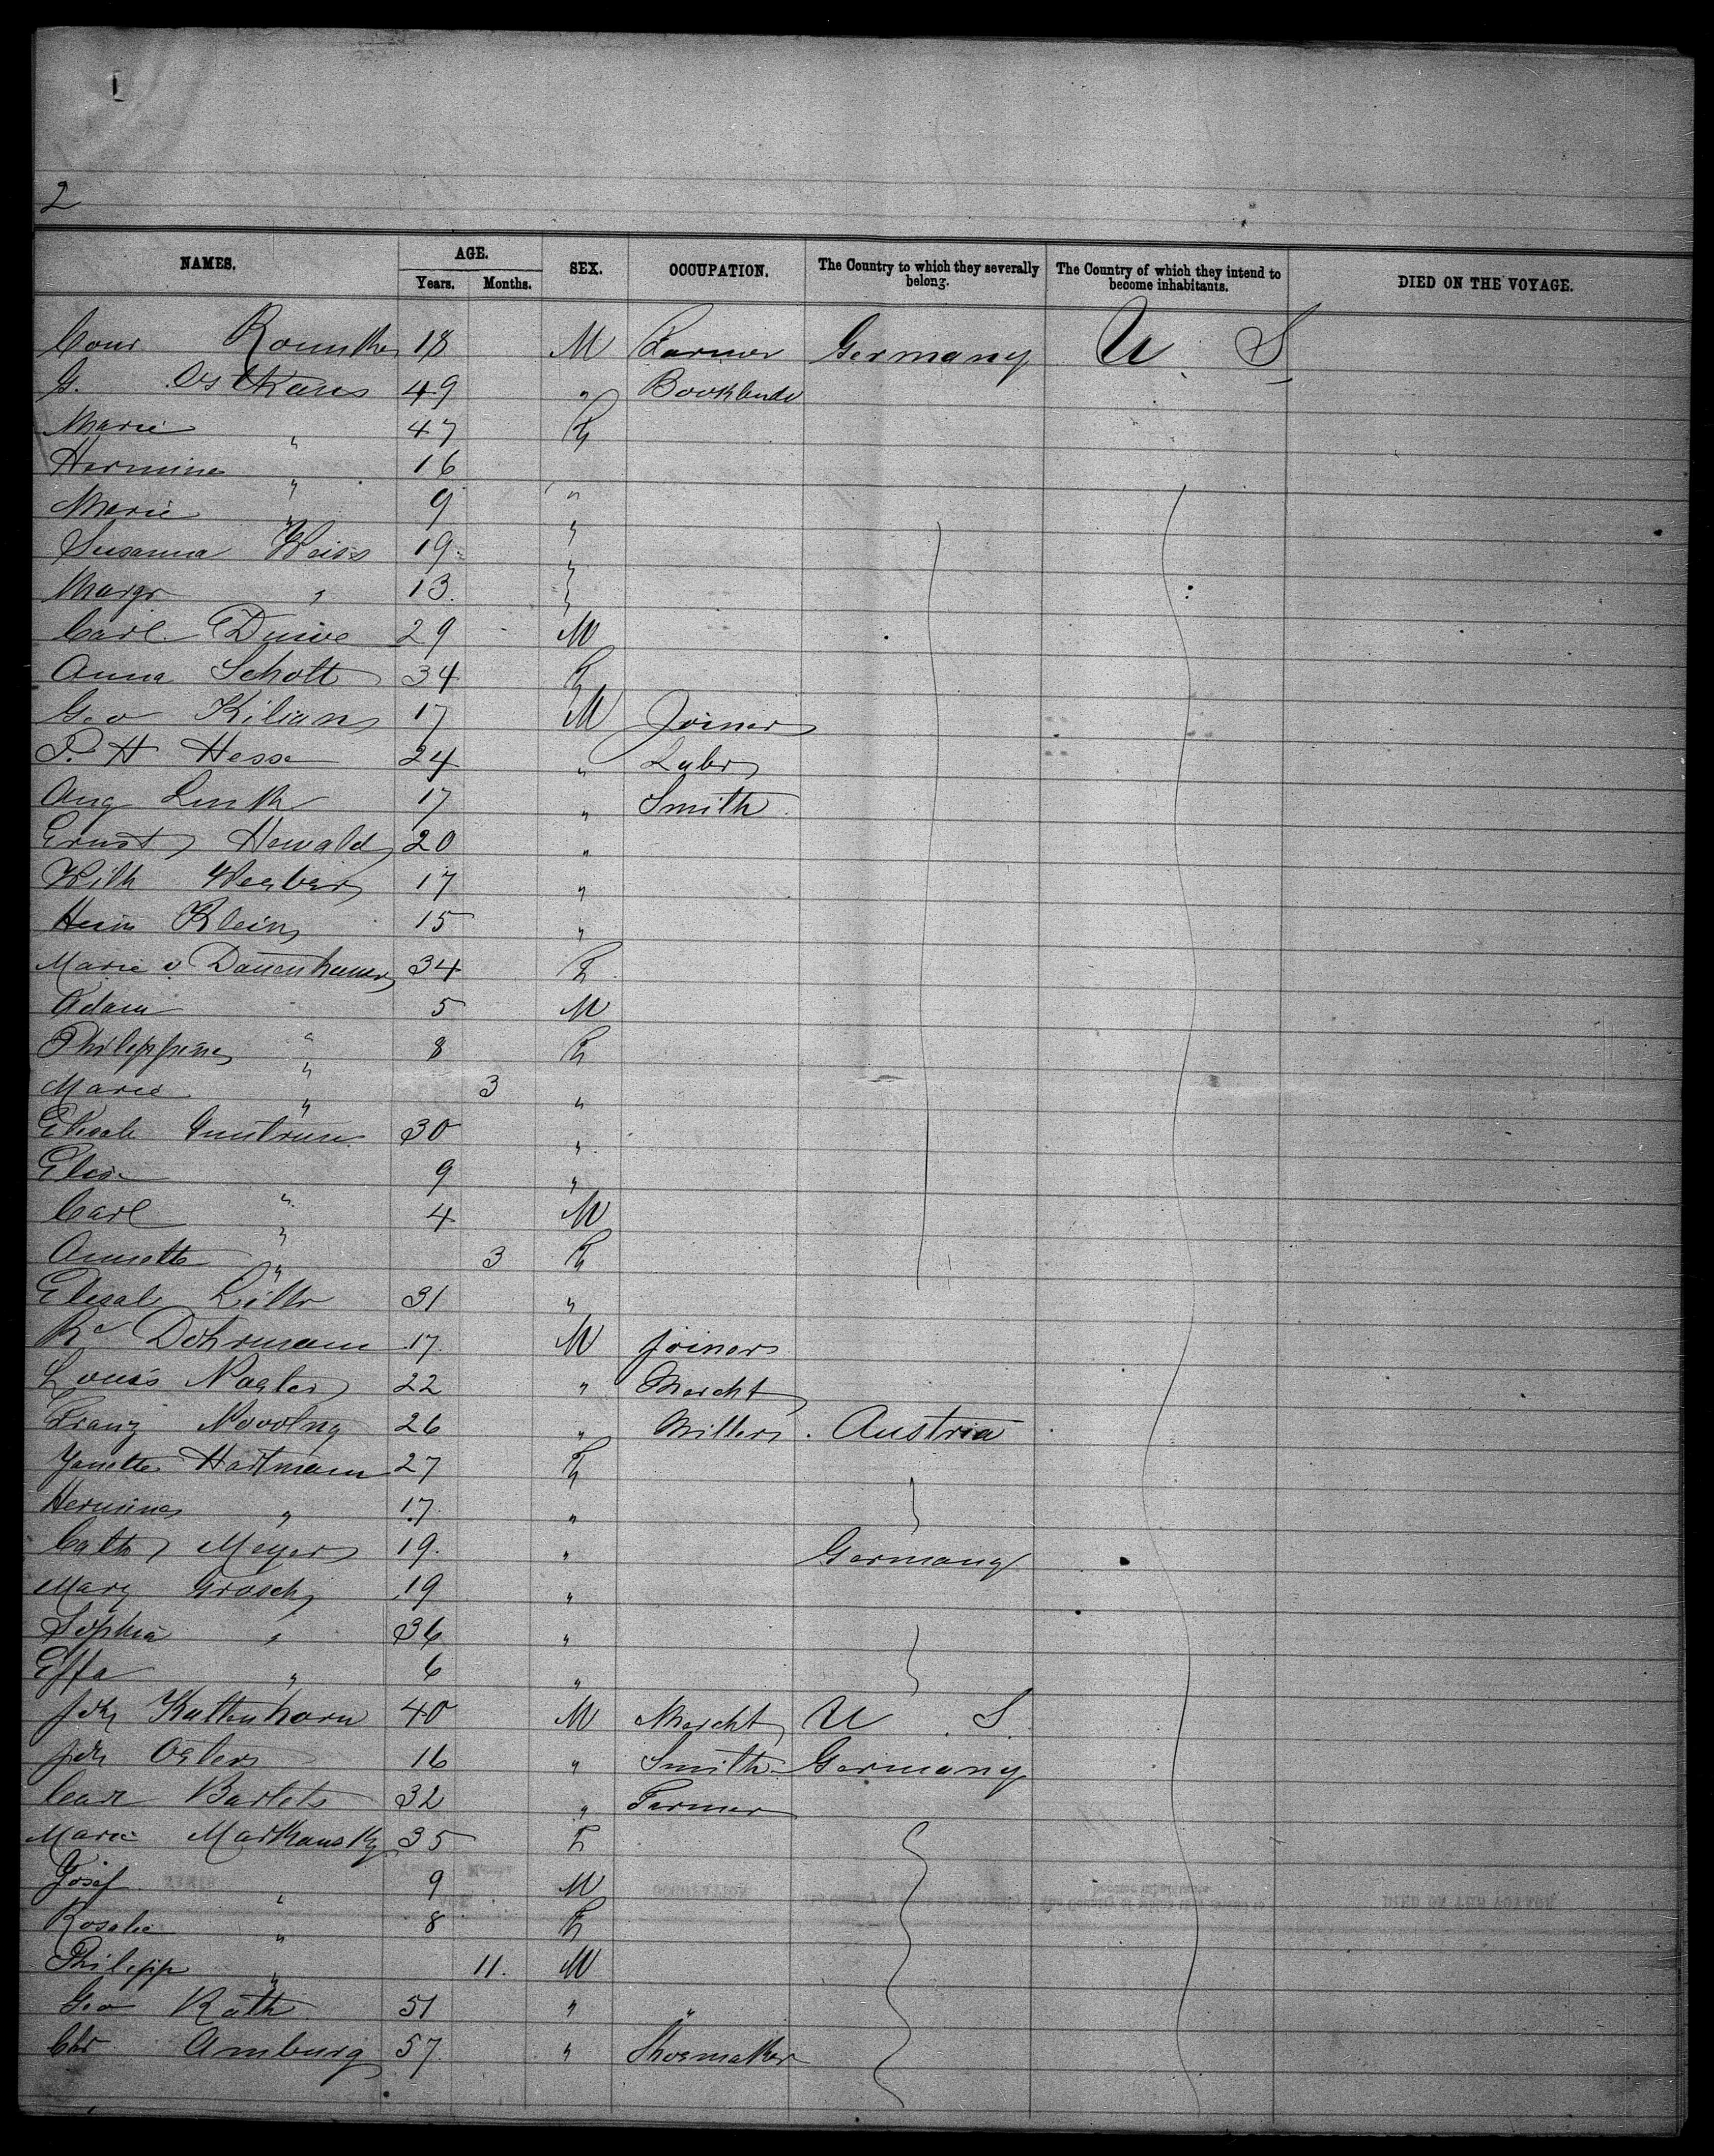 2
NAMES. AGE. SEX. OCCUPATION. The Country to which they severally belong. The Country of which they intend to become inhabitants. DIED ON THE VOYAGE.
Years. Months.
18 M Farmer Germany U S
G. 49 "
Marie " 47 F
Hermine " 16 "
Marie " 9 "
Susanna Weiss 19 "
Margr " 13 "
Carl 29 M
Anna Schott 34 F
Geo Kilian 17 M Joiner
P. H Hesse 24 " Labr
Aug Link 17 " Smith
Ernst Hewald 20 "
Wilh Weeber 17 "
Klein 15 "
Marie v. Dauenhauer 34 F
Adam " 5 M
Philippine " 8 F
Marie " 3 "
Elisab 30 "
Elise " 9 "
Carl " 4 M
Annette " 3 F
Elisab 31 "
Dohrmann 17 M Joiner
Louis 22 " Mercht
Franz 26 " Miller Austria
Janette Hartmann 27 F
Hermine " 17 "
Cath Meyer 19 " Germany
Mary Grosch 19 "
Sophia " 36 "
Effa " 6 "
Joh Kattenhorn 40 M Mercht U S
Joh 16 " Smith Germany
32 " Farmer
Marie Markansky 35 F
Josef " 9 M
Rosalie " 8 F
Philipp " 11 M
Geo Rath 51 " "
Chr Amburg 57 " Shoemaker